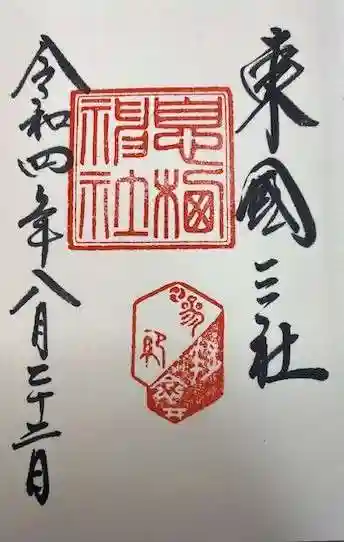 東國三社
息栖
神社
令和四年八月二十二日